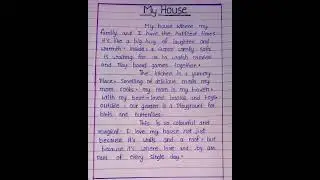 My House
My house where my
family and I have the happiest times
it's like a big hug of laughter and
warmth. Inside, a super comfy sofa
is waiting for us to watch movies
and play board games together.
The kitchen is a yummy
place. Smelling of delicious meals my
mom cooks. my room is my haven
with my best-loved books and toys.
outside, our garden is a playground for
birds and butterflies.
This is so colourful and
magical. I love my house not just
because it's walls and a roof, but
because it's where love and
care of every single day.